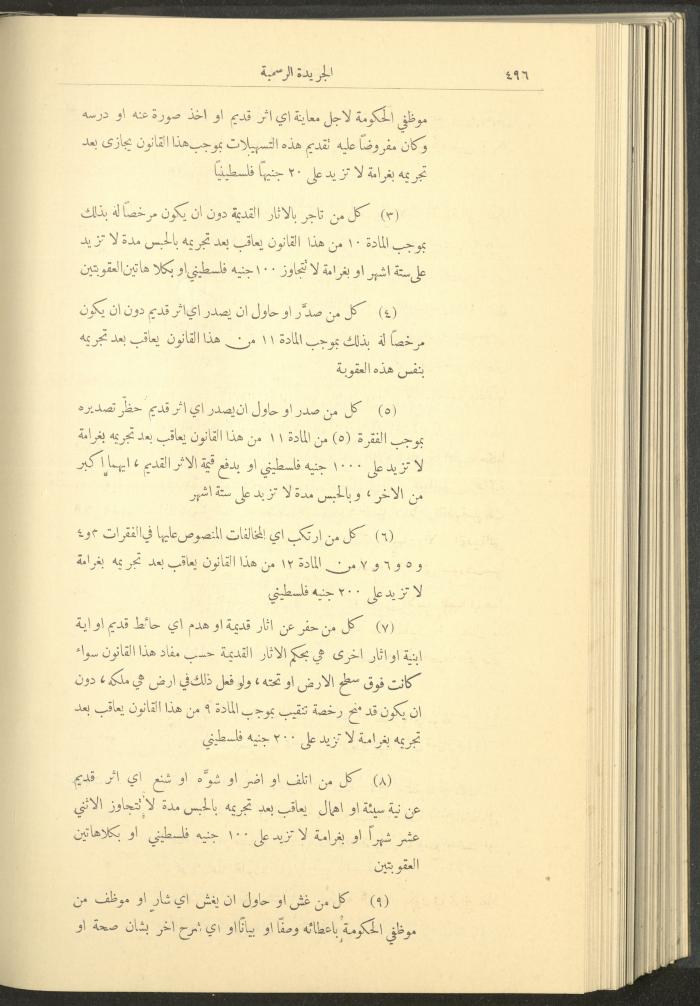 ٤٩٦
الجريدة الرسمية
موظفي الحكومة لاجل معاينة اي اثر قديم او اخذ صورة عنه او درسه
وكان مفروضاً عليه تقديم هذه التسهيلات بموجب هذا القانون يجازى بعد
تجريمه بغرامة لا تزيد على ٢٠ جنيهاً فلسطينياً
(٣) كل من تاجر بالاثار القديمة دون ان يكون مرخصاً له بذلك
بموجب المادة ١٠ من هذا القانون يعاقب بعد تجريمه بالحبس مدة لا تزيد
على ستة اشهر او بغرامة لا تتجاوز ١٠٠ جنيه فلسطيني او بكلا هاتين العقوبتين
(٤) كل من صدَّر او حاول ان يصدر اي اثر قديم دون ان يكون
مرخصاً له بذلك بموجب المادة ١١ من هذا القانون يعاقب بعد تجريمه
بنفس هذه العقوبة
(٥) كل من صدر او حاول ان يصدر اي اثر قديم حظّر تصديره
بموجب الفقرة (٥) من المادة ١١ من هذا القانون يعاقب بعد تجريمه بغرامة
لا تزيد على ١٠٠٠ جنيه فلسطيني او بدفع قيمة الاثر القديم ، ايهما اكبر
من الاخر ، وبالحبس مدة لا تزيد على ستة اشهر
(٦) كل من ارتكب اي المخالفات المنصوص عليها في الفقرات ٣ و ٤
و ٥ و ٦ و ٧ من المادة ١٢ من هذا القانون يعاقب بعد تجريمه بغرامة
لا تزيد على ٢٠٠ جنيه فلسطيني
(٧) كل من حفر عن اثار قديمة او هدم اي حائط قديم او اية
ابنية او اثار اخرى هي بحكم الاثار القديمة حسب مفاد هذا القانون سواء
كانت فوق سطح الارض او تحته ، ولو فعل ذلك في ارض هي ملكه ، دون
ان يكون قد منح رخصة تنقيب بموجب المادة ٩ من هذا القانون يعاقب بعد
تجريمه بغرامة لا تزيد على ٢٠٠ جنيه فلسطيني
(٨) كل من اتلف او اضر او شوَّه او شنع اي اثر قديم
عن نية سيئة او اهمال يعاقب بعد تجريمه بالحبس مدة لا تتجاوز الاثني
عشر شهراً او بغرامة لا تزيد على ١٠٠ جنيه فلسطيني او بكلا هاتين
العقوبتين
(٩) كل من غش او حاول ان يغش اي شارٍ او موظف من
موظفي الحكومة باعطائه وصفاً او بياناً او اي شرح اخر بشان صحة او